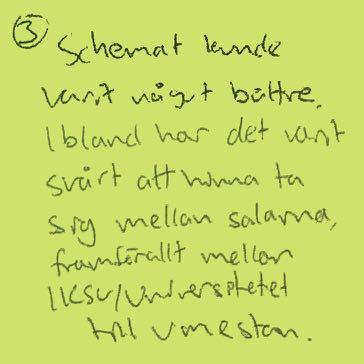 ③ Schemat kunde
varit något bättre.
Ibland har det varit
svårt att hinna ta
sig mellan salarna,
framförallt mellan
IKSU/Universitetet
till Umestan.